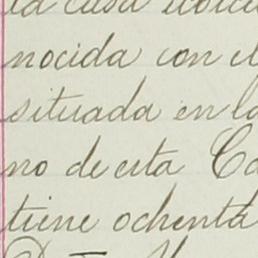 la casa
nocida con el
situada en la
no de esta Ca
tiene ochenta